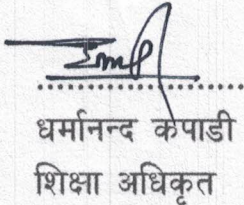 धर्मानन्द कपाडी
शिक्षा अधिकृत